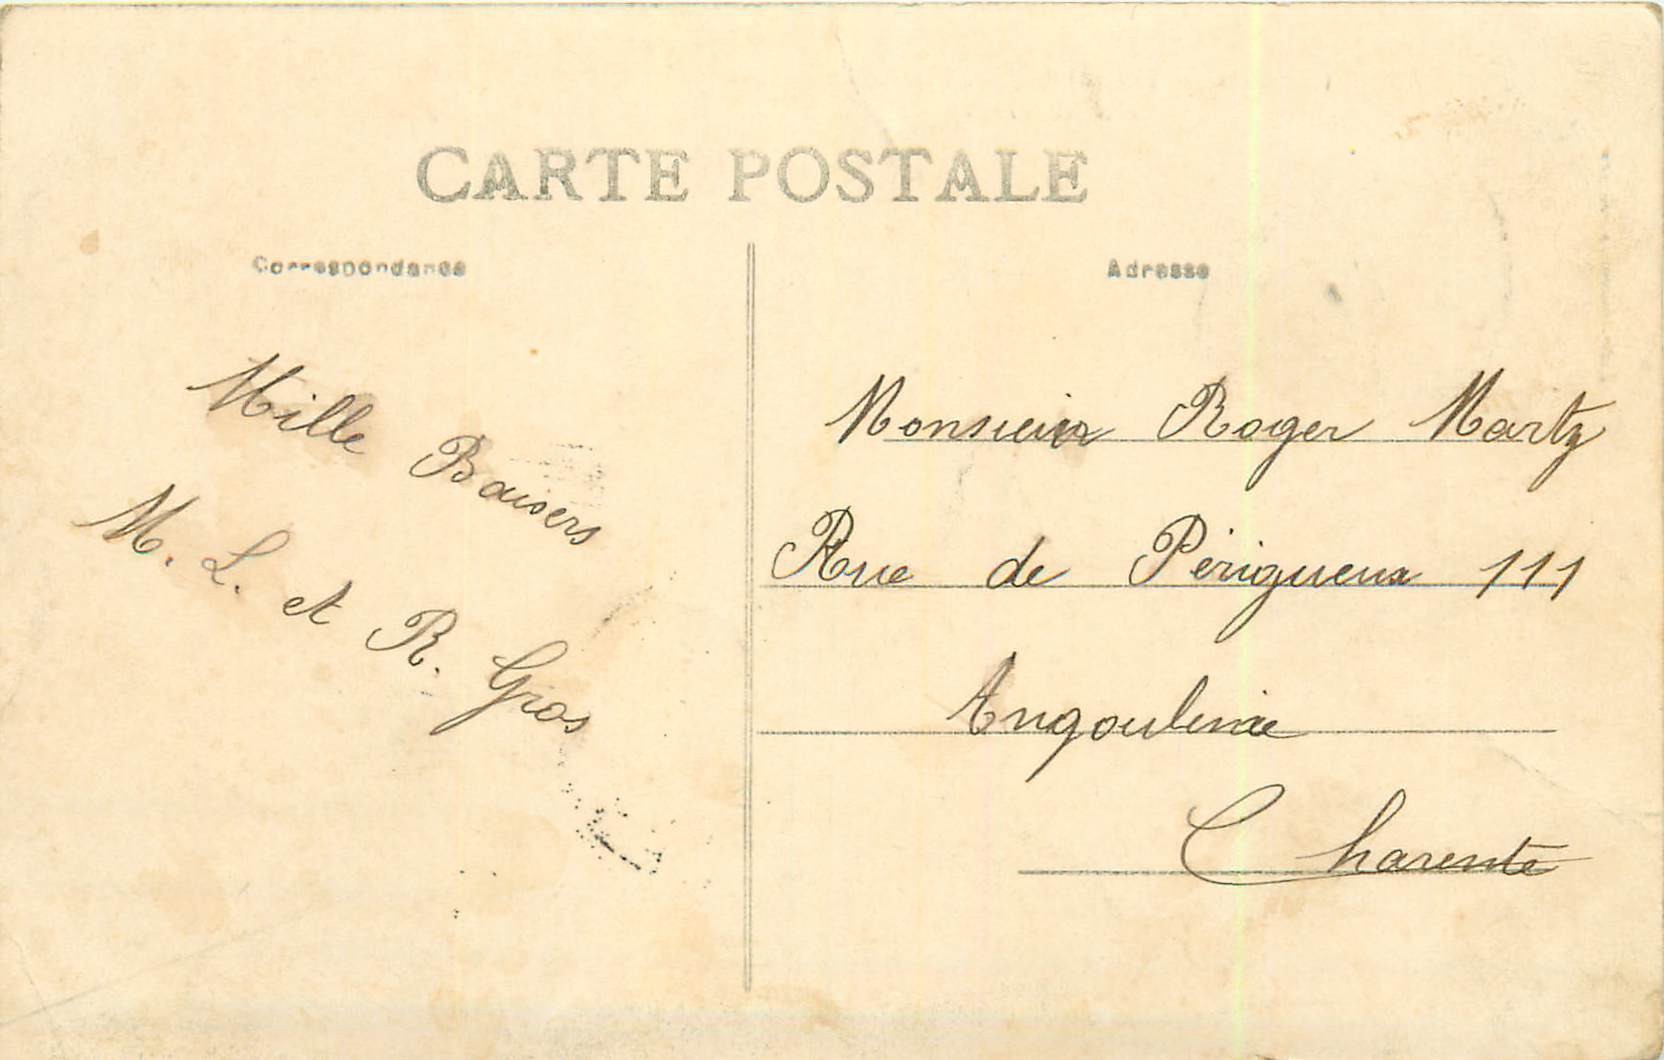 CARTE POSTALE
Correspondance
Adresse
Mille Baisers
M. L. et R. Gros
Monsieur Roger Martz
Rue de Périgueux 111
Angoulême
Charente